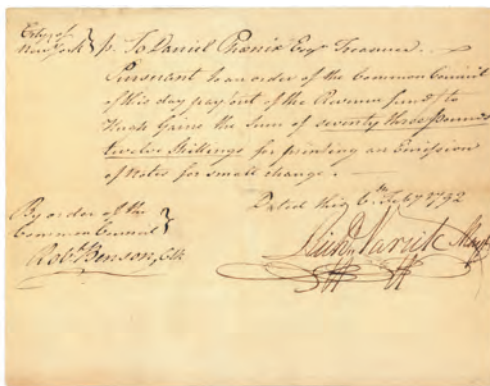 City of
New York } ss. To Daniel Phœnix Esqr. Treasurer.
Pursuant to an order of the Common Council
of this day pay out of the Revenue fund to
Hugh Gaine the Sum of seventy three pounds
twelve Shillings for printing an Emission
of Notes for small change.
Dated this 6th Feby 1792
By order of the
Common Council }
Robt Benson, Clk
Richd Varick Mayor